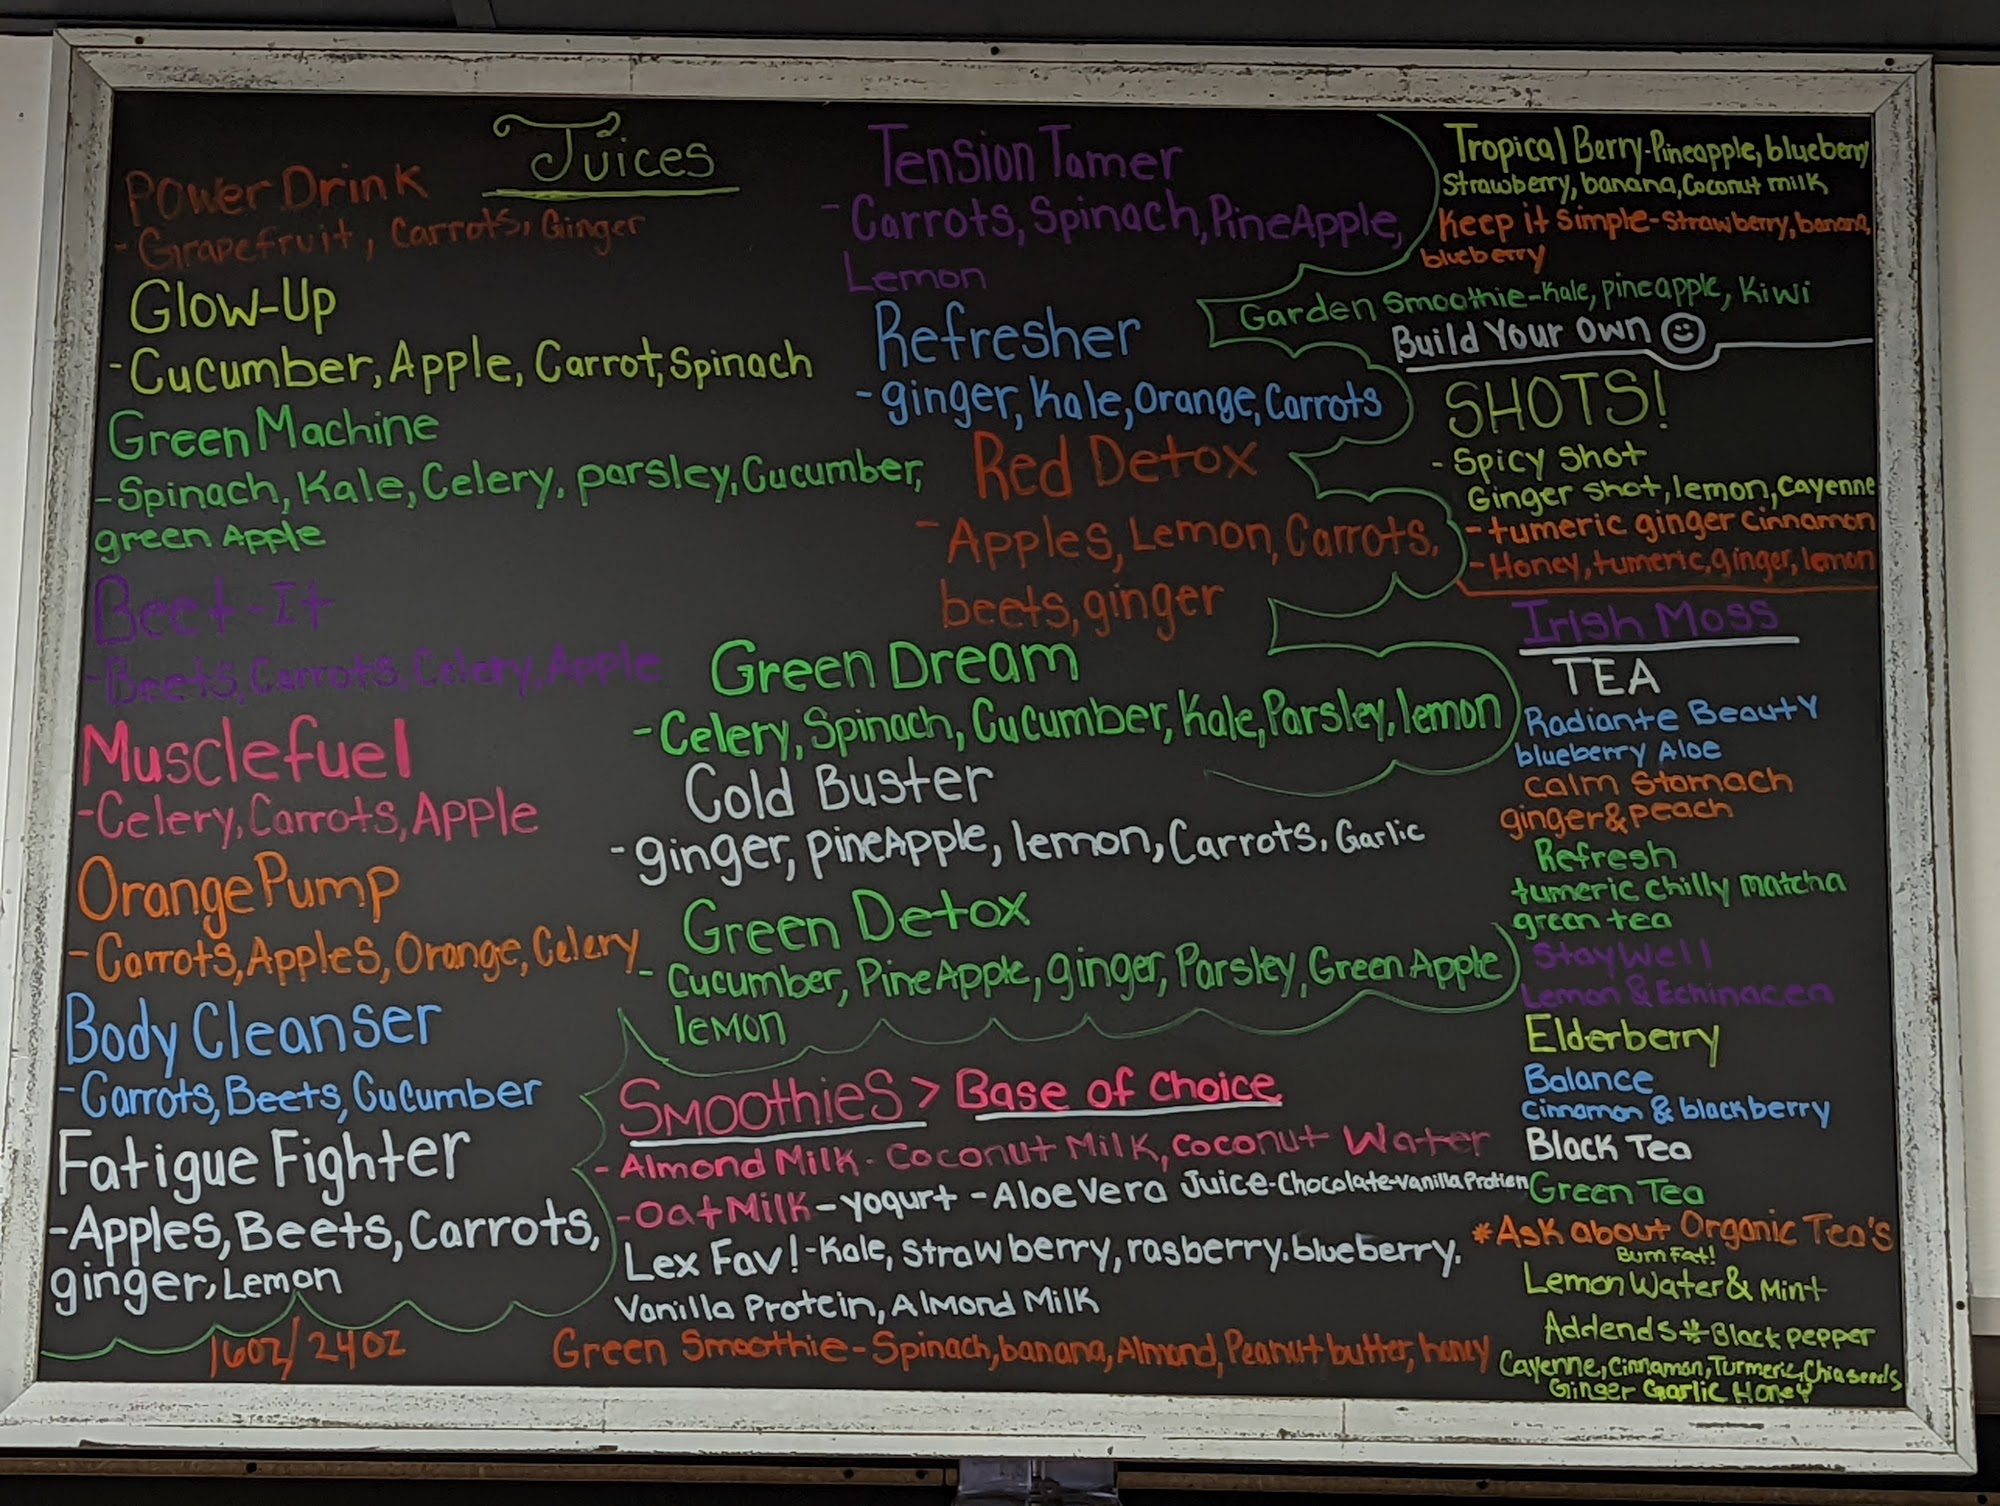 Juices
Power Drink
- Grapefruit, Carrots, Ginger
Glow-Up
- Cucumber, Apple, Carrot, Spinach
Green Machine
- Spinach, Kale, Celery, parsley, Cucumber,
green Apple
Beet-It
- Beets, Carrots, Celery, Apple
Musclefuel
- Celery, Carrots, Apple
Orange Pump
- Carrots, Apples, Orange, Celery
Body Cleanser
- Carrots, Beets, Cucumber
Fatigue Fighter
- Apples, Beets, Carrots,
ginger, Lemon
16oz/24oz
Tension Tamer
- Carrots, Spinach, PineApple,
Lemon
Refresher
- ginger, Kale, Orange, Carrots
Red Detox
- Apples, Lemon, Carrots,
beets, ginger
Green Dream
- Celery, Spinach, Cucumber, Kale, Parsley, lemon
Cold Buster
- ginger, pineApple, lemon, Carrots, Garlic
Green Detox
- Cucumber, PineApple, ginger, Parsley, Green Apple
lemon
Smoothies > Base of choice
- Almond Milk - Coconut Milk, Coconut Water
- Oat Milk - yogurt - Aloe Vera Juice - Chocolate - Vanilla Protien
Lex Fav! - Kale, strawberry, rasberry, blueberry,
Vanilla Protein, Almond Milk
Green Smoothie - Spinach, banana, Almond, Peanut butter, honey
Tropical Berry - Pineapple, blueberry
Strawberry, banana, Coconut milk
Keep it simple - strawberry, banana,
blueberry
Garden Smoothie - Kale, pineapple, Kiwi
Build Your Own
SHOTS!
- Spicy Shot
Ginger shot, lemon, Cayenne
- tumeric ginger cinnamon
- Honey, tumeric, ginger, lemon
Irish Moss
TEA
Radiante Beauty
blueberry Aloe
Calm Stomach
ginger & peach
Refresh
tumeric chilly matcha
green tea
Stay Well
Lemon & Echinacea
Elderberry
Balance
cinnamon & blackberry
Black Tea
Green Tea
*Ask about Organic Tea's
Burn Fat!
Lemon Water & Mint
Addends * Black pepper
Cayenne, Cinnamon, Turmeric, Chia seeds
Ginger Garlic Honey